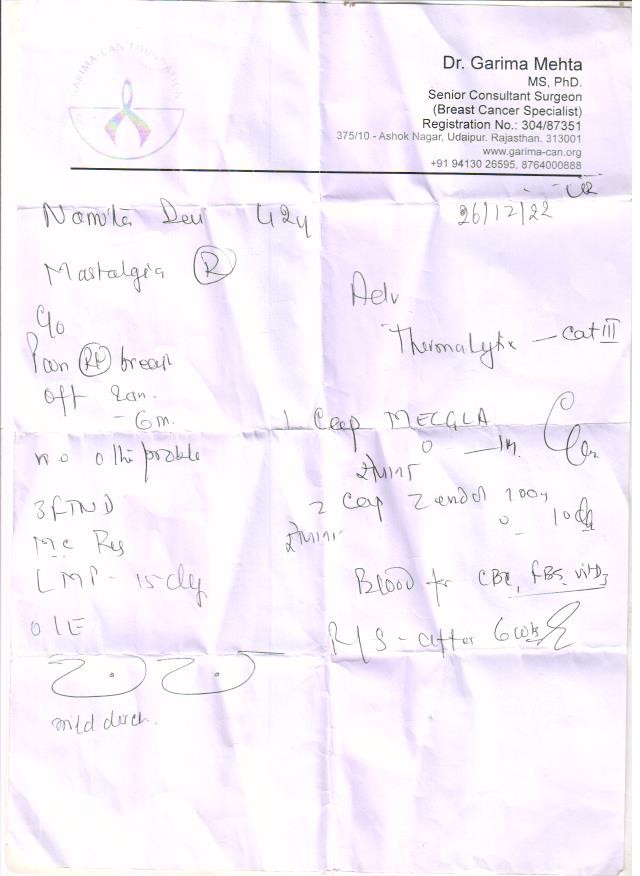 GARIMA-CAN FOUNDATION
Dr. Garima Mehta
MS, PhD.
Senior Consultant Surgeon
(Breast Cancer Specialist)
Registration No.: 304/87351
375/10 - Ashok Nagar, Udaipur. Rajasthan. 313001
www.garima-can.org
+91 94130 26595, 8764000888
Namita Devi 42y
26/12/22
Mastalgia R
C/o
Pain Rt breast
off
- 6m.
no othe proble
3FTND
MC Reg
LMP - 15 day
O/E
mild disch.
Adv
Thermalytix - Cat III
1 Cap MECGLA
0 - 1m
2 Cap
0 -
Blood for CBC, FBS, vitD3
R/S - after 6 wks